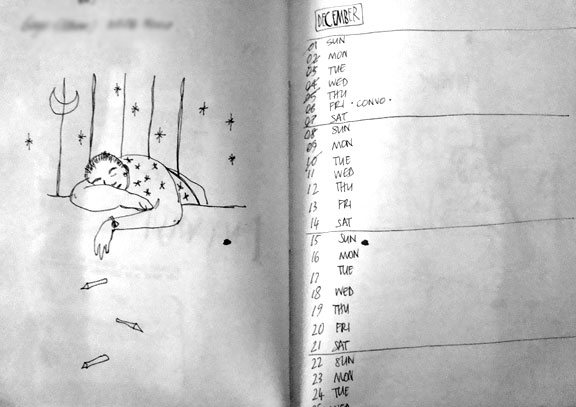 DECEMBER
01 SUN
02 MON
03 TUE
04 WED
05 THU
06 FRI · CONVO ·
07 SAT
08 SUN
09 MON
10 TUE
11 WED
12 THU
13 FRI
14 SAT
15 SUN
16 MON
17 TUE
18 WED
19 THU
20 FRI
21 SAT
22 SUN
23 MON
24 TUE
WED